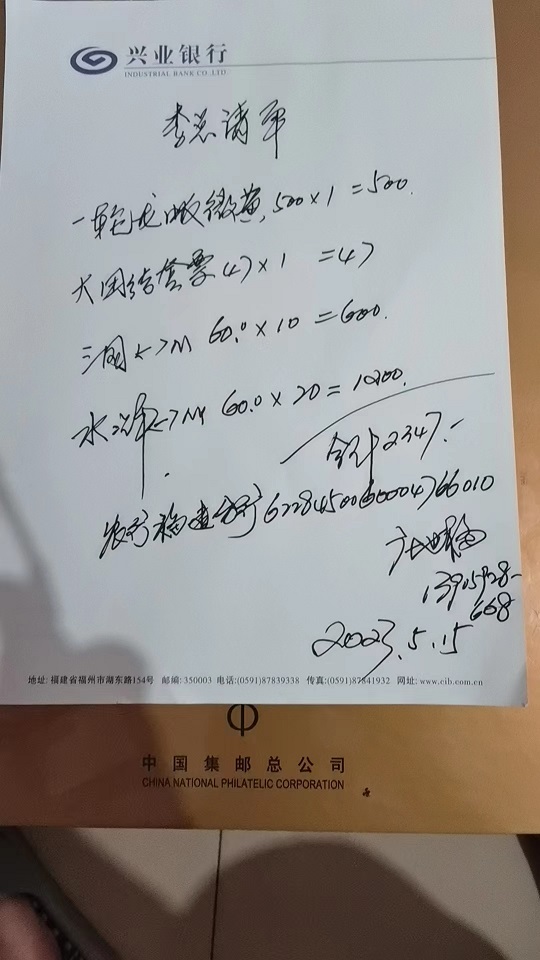 兴业银行
INDUSTRIAL BANK CO.,LTD
李总清单
一轮龙 500×1=500.
大团结套票 47×1 =47
三国 60.0×10=600.
水浒 60.0×20=1200.
合计2347.-
农行福建分行
2023.5.15
地址: 福建省福州市湖东路154号 邮编: 350003 电话:(0591)87839338 传真:(0591)87841932 网址: www.cib.com.cn
中国集邮总公司
CHINA NATIONAL PHILATELIC CORPORATION